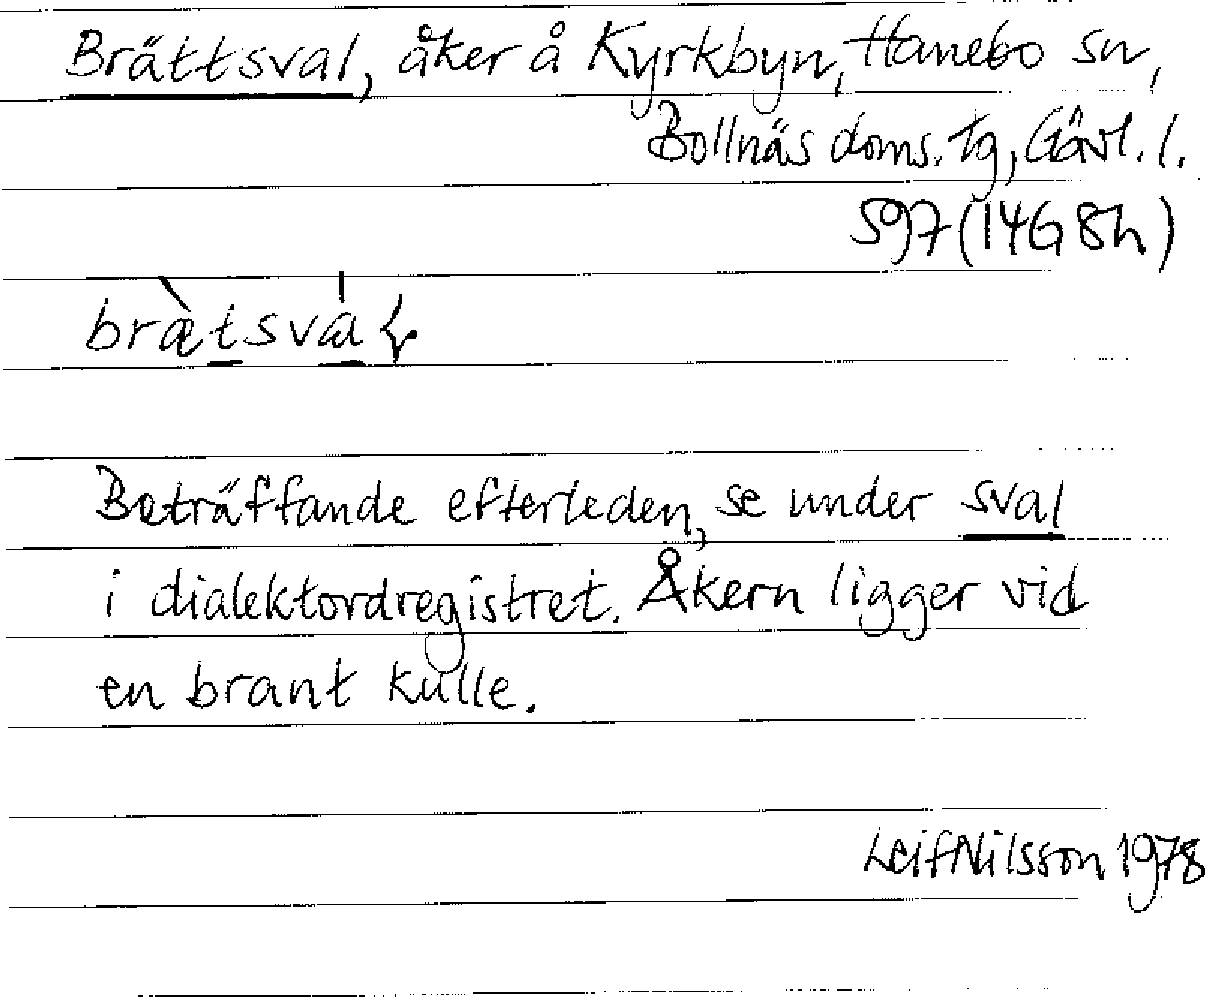 Brättsval, åker å Kyrkbyn, Hanebo sn,
Bollnäs doms. tg, Gävl. l.
S97 (14G 8h)
Beträffande efterleden, se under sval
i dialektordregistret. Åkern ligger vid
en brant kulle.
Leif Nilsson 1978